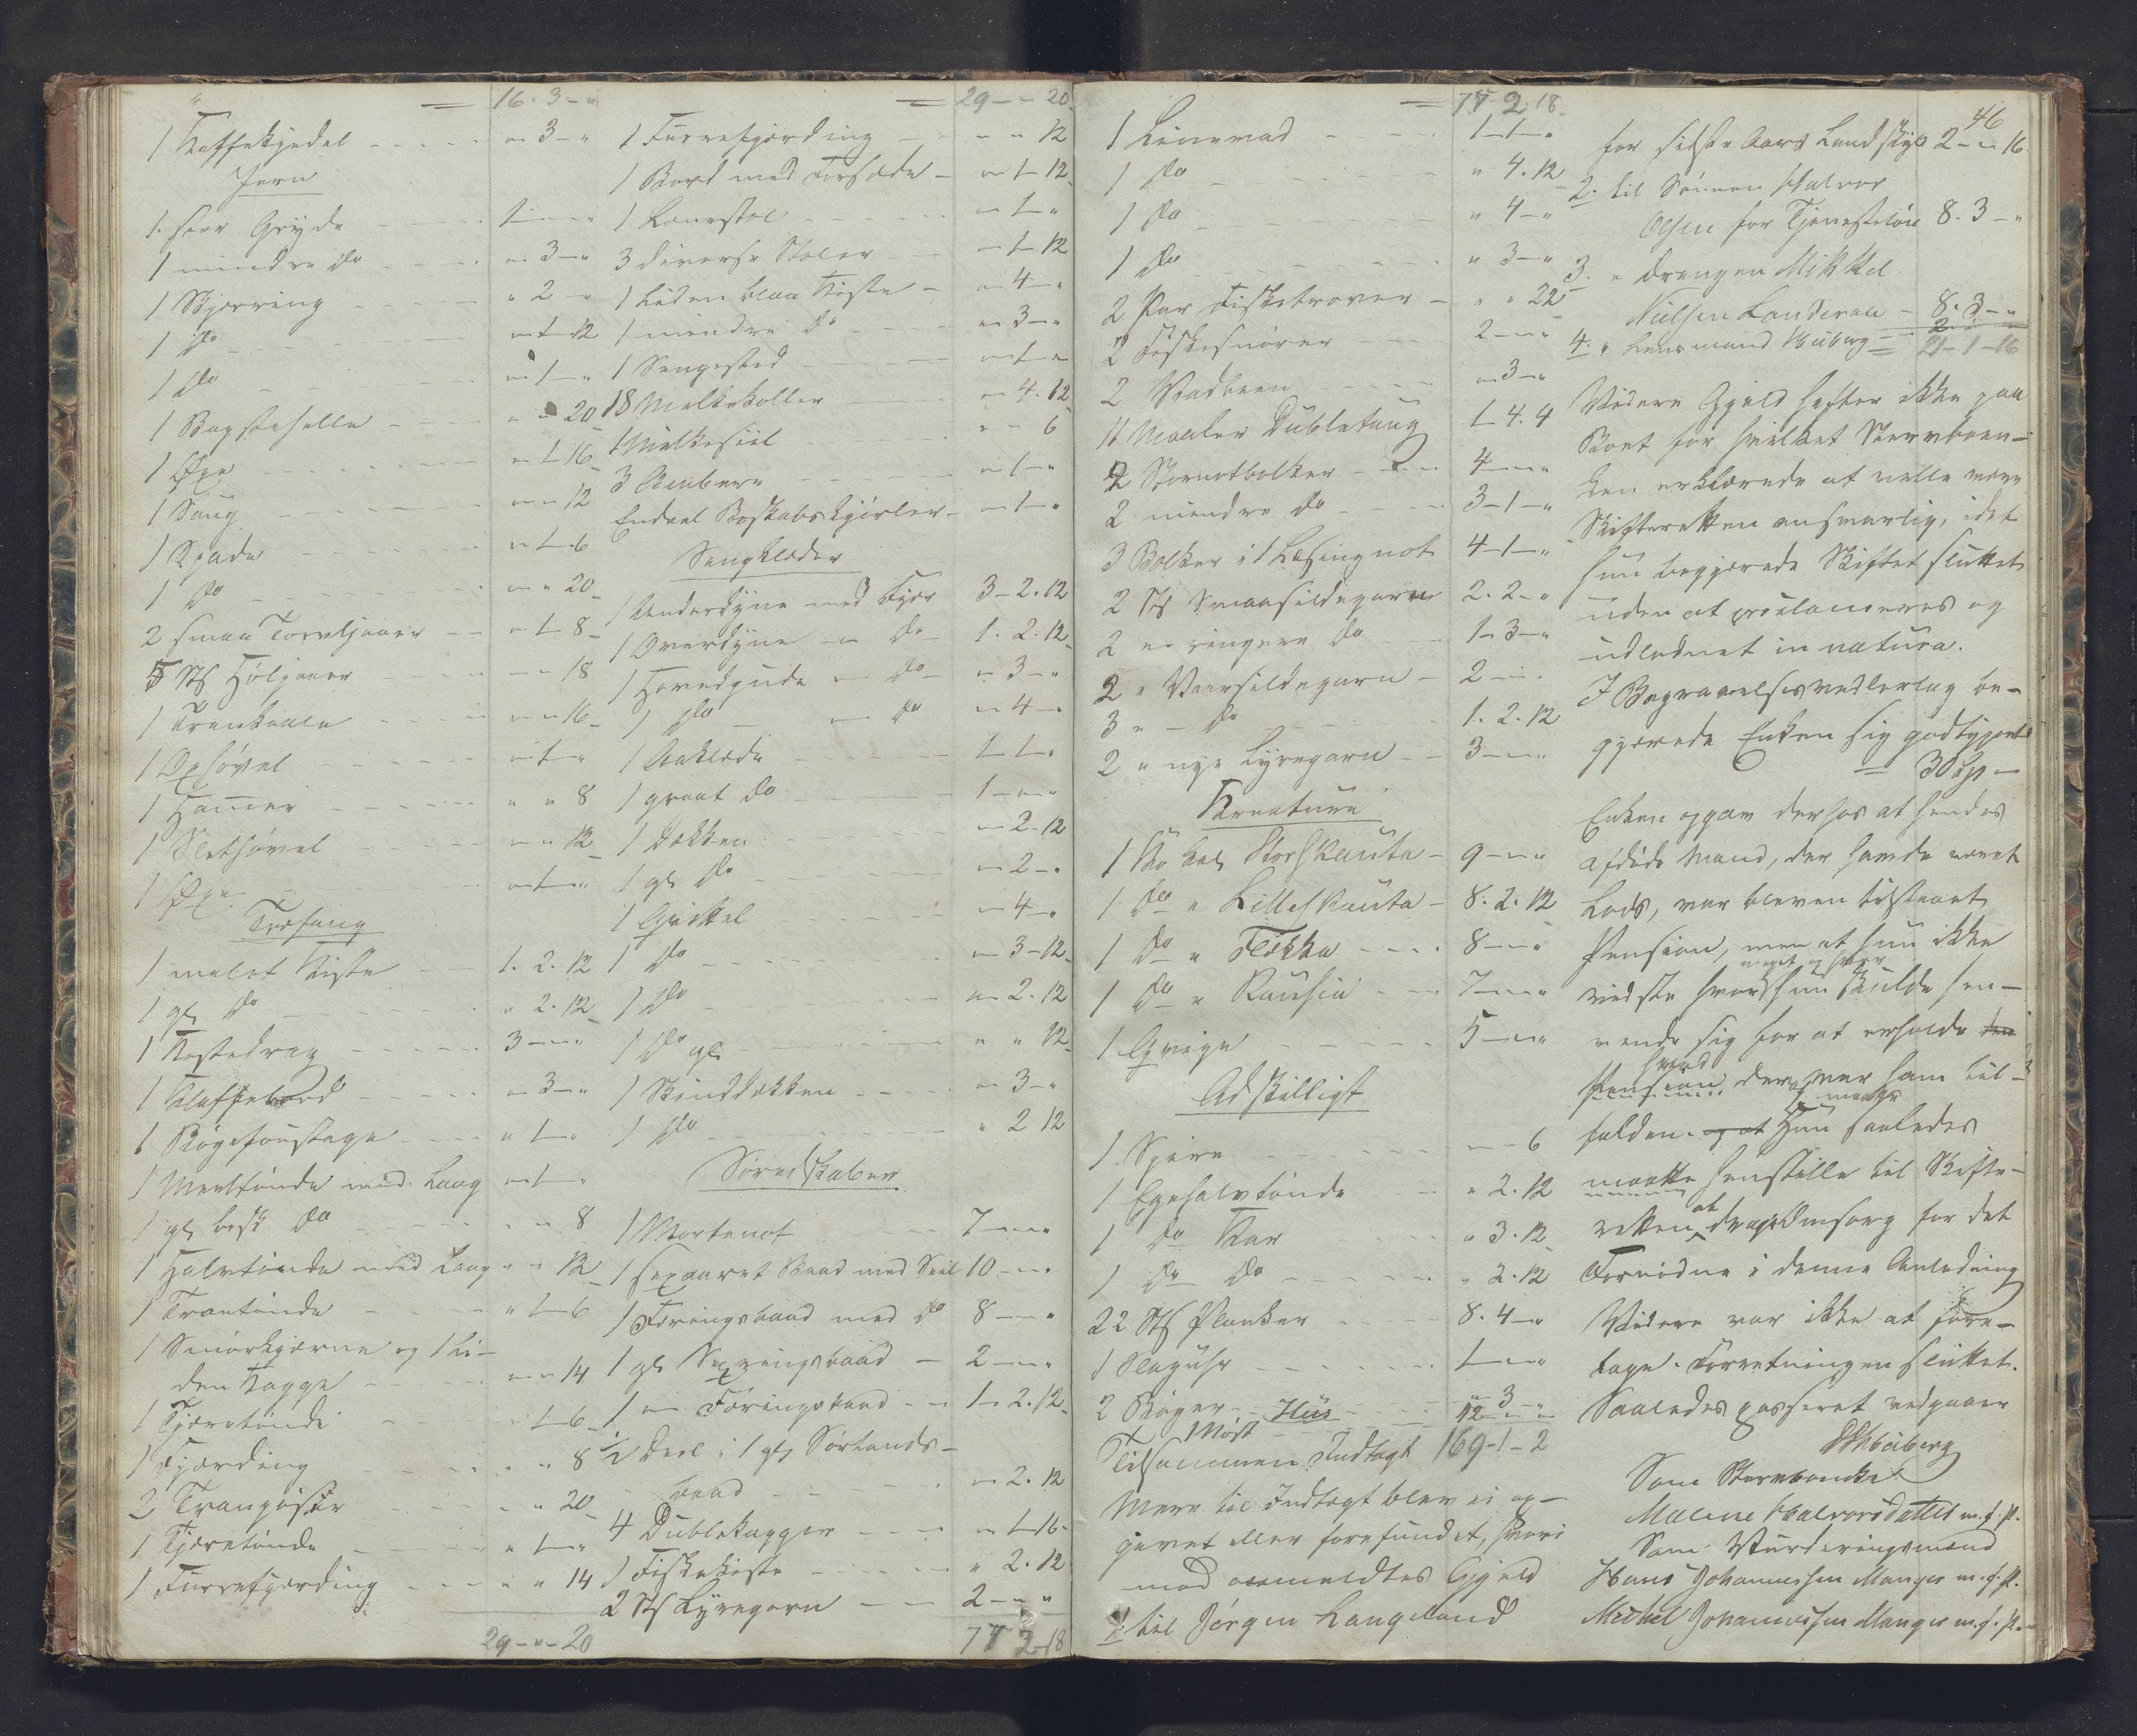 = 16. 3 - "
1 Kaffekjedel - - - - " 3 - "
Jern
1 stor Gryde - - 1 - " - "
1 mindre do - - - " 3 - "
1 Skjæring - - - " 2 - "
1 do - - - " 1 - 12
1 do - - - " 1 - "
1 Bagstehelle - - - " " 20
1 Øxe - - - " 1 - 16
1 Saug - - - " " 12
1 Spade - - - " 1 - 6
1 do - - - " " 20
2 smaa Torvljaaer - - " 1 - 8
5 Stk Høljaaer - - " " 18
1 - - " " 16
1 Oxhøvel - - - " 1 - "
1 Hamer - - - " " 8
1 Slethøvel - - - " " 12
1 Øxe - - - " 1 - "
Træfang
1 malet Kiste - - 1. 2. 12
1 gl do - - - " 2. 12
1 - - - 3 - " - "
1 Klaffebord - - - " 3 - "
1 - - - " 1 - "
1 Meeltønde med Laag " 1 - "
1 gl besk do - - - " " 8
1 Halvtønde med Laag " " 12
1 Trantønde - - - " 1 - 6
1 Smørkjærne og 1 li-
den Kagge - - - " " 14
1 Tjæretønde - - " 1 - 6
1 Fjærding - - - " " 8
2 - - - " " 20
1 Tjæretønde - - - " 1 - "
1 Furrefjærding - - - " " 14
29 - " - 20
= 29 - " - 20
1 Furrefjærding - - " " 12
1 Bord med Forsæde - " 1 - 12
1 Lænestol - - - " 1 - "
3 diverse Stoler - - " 1 - 12
1 liden blaa Kiste - " 4 - "
1 mindre do - - - " 3 - "
1 Sengested - - - " 1 - "
18 Melkekoller - - " 4. 12
1 Melkesiil - - - " " 6
3 Ambere - - - " 1 - "
Endeel Boskabskjørler - " 1 - "
Sengklæder
1 Underdyne med Fjær 3 - 2. 12
1 Overdyne " do - 1. 2. 12
1 Hovedpude " do - " 3 - "
1 do - " do " 4 - "
1 Aaklæde - - - 1 - 1 - "
1 graat do - - - 1 - " - "
1 Dækken - - - " 2 - 12
1 gl do - - - " 2 - "
1 - - - " 4 - "
1 do - - - " 3 - 12
1 do - - - " 2. 12
1 do gl - - - " " 12
1 Skinddækken - - " 3 - "
1 do - - - " 2 12
Søredskaber
1 Mortenot - - 7 - " - "
1 sexaaret Baad med Seil 10 - " - "
1 Færingsbaad med do 8 - " - "
1 gl Sexringsbaad - 2 - " - "
1 " Færingsbaad - - 1 - 2. 12
½ Deel i 1 gl Sørlands-
baad - - - " 2. 12
4 Dublekagger - - " 1 - 16
1 Fiskekiste - - - " 2. 12
2 Stk Lyregarn - - 2 - " "
77 2 - 18
= 77 2 18
1 Linevad - - - 1 - 1 - "
1 do - - - " 4. 12
1 do - - - " 4 - "
1 do - - - " 3 - "
2 Par Fisketrover - " " 22
2 Fiskesnører - - 2 - " "
2 Vadbeen - - - " 3 - "
11 Maaler Dubletaug 1 - 4. 4
2 Stornotbolker - - 4 - " "
2 mindre do - - 3 - 1 - "
3 Bolker i 1 Læsingnot 4 - 1 - "
2 Stk Smaasildegarn 2. 2 - "
2 " ringere do - 1 - 3 - "
2 " Vaarsildegarn - 2 - " -
3 " - do - - 1. 2. 12
2 " nye Lyregarn - - 3 - " - "
Kreature
1 Ko kal Storskauta - 9 - " - "
1 do " Lilleskauta - 8. 2. 12
1 do " Flekka - - - 8 - " - "
1 do " Rausin - - 7 - " - "
1 Qvige - - - 5 - " - "
Adskilligt
1 Spire - - - " - 6
1 Egehalvtønde - - " 2. 12
1 do Kar - - - " 3. 12
1 do do - - - " 2. 12
22 Stk Planker - - 8. 4 - "
1 Slaguhr - - - 1 - " - "
2 Bøger - - - " 3 - "
1 Nøst Huus - - 12 - " - "
Tilsammen Indtægt 169 - 1 - 2
Mere til Indtægt blev ei op-
givet eller forefundet, hvori
mod anmeldtes Gjeld
1. til Jørgen Langeland
46
for sidste Aars Landskyld 2 - " 16
2. til Sønnen Halvor
Olsen for Tjenesteløn 8. 3 - "
3. " Drengen Mikkel
Nielsen Landsvae - 8. 3 - "
4. " Lensmand Hviberg - 2 - " "
= 21 - 1 - 16
Videre Gjeld hefter ikke paa
Boet for hvilket Stervboen-
ken erklærede at ville være
Skifteretten ansvarlig, idet
hun begjærede Skiftet sluttet
uden at proclameres og
udlodnet in natura.
I Begravelsesvederlag be-
gjærede Enken sig godtgjort
= 30 Sp -
Enken opgav derhos at hendes
afdøde Mand, der havde været
Lods, var bleven tilstaaet
Pension, men at hun ikke
vidste hvor hun skulde hen-
vende sig for at erholde den
hvad
Pension der var ham til-
falden. og at Hun saaledes
maatte henstille til Skifte-
retten at drage Omsorg for det
Fornødne i denne Anledning
Videre var ikke at fore-
tage. Forretningen sluttet.
Saaledes passeret vedgaaer
Som Stervboenke
Malene Halvorsdatter m. f. P.
Som Vurderingsmænd
Hans Johannessen Manger m. f. P.
Mikkel Johannessen Manger m. f. P.